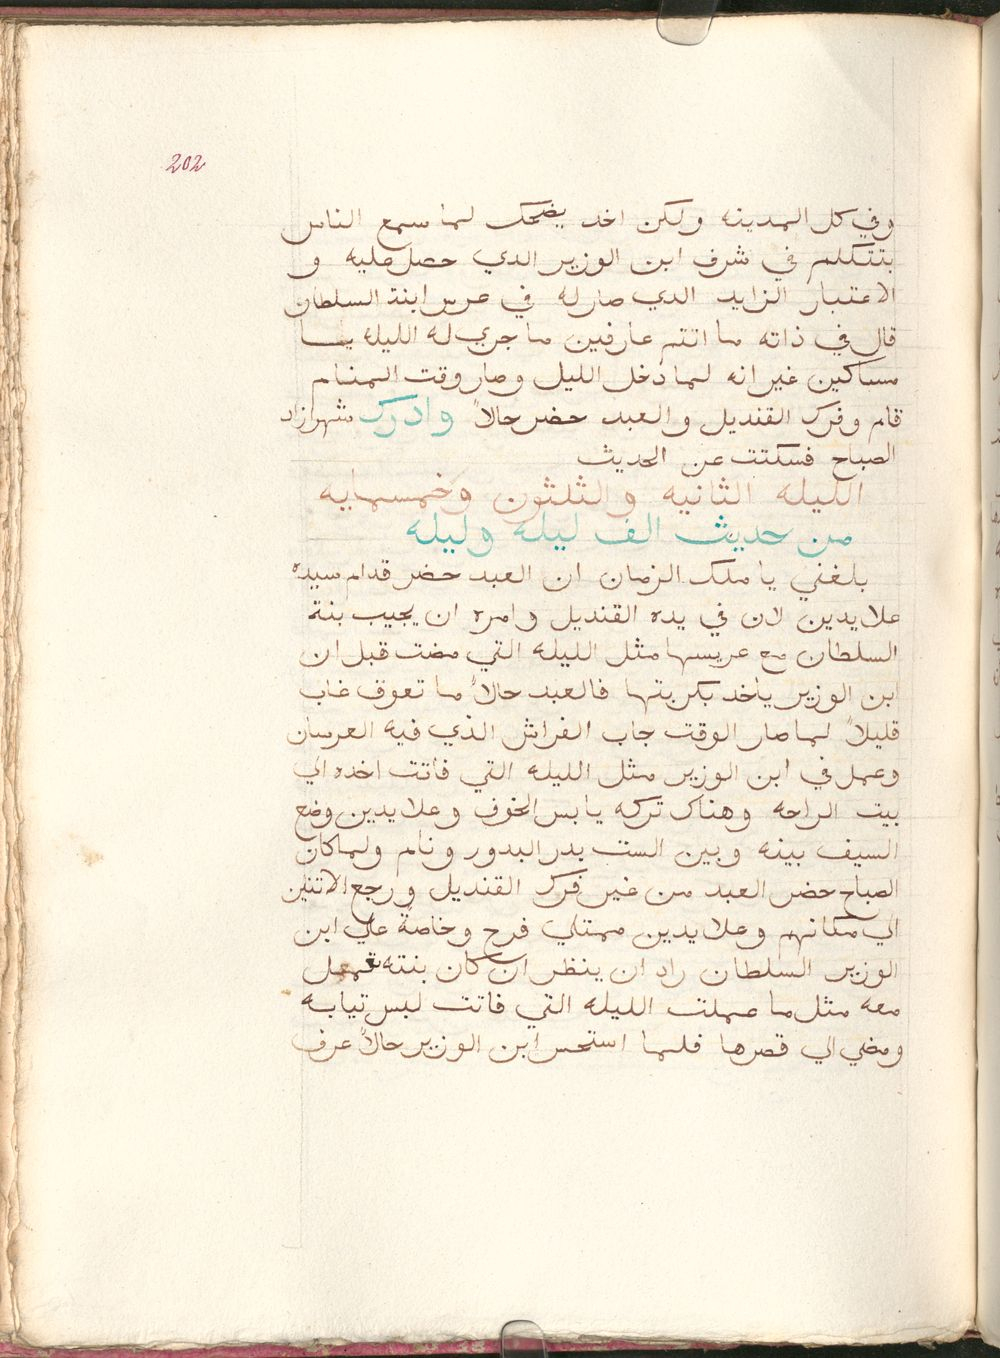 202
وفي كل المدينه ولكن اخد يضحك لما سمع الناس
بتتكلم في شرف ابن الوزير الدي حصل عليه و
الاعتبار الزايد الدي صار له في عرس ابنة السلطان
قال في ذاته ما انتم عارفين ما جري له الليله يا
مساكين غير انه لما دخل الليل وصار وقت المنام
قام وفرك القنديل والعبد حضر حالاً وادرك شهرازاد
الصباح فسكتت عن الحديث
الليله الثانيه والثلثون وخمسمايه
من حديث الف ليله وليله
بلغني يا ملك الزمان ان العبد حضر قدام سيده
علايدين لان في يده القنديل وامره ان يجيب بنة
السلطان مع عريسها مثل الليله التي مضت قبل ان
ابن الوزير ياخد بكريتها فالعبد حالاً ما تعوق غاب
قليلاً لما صار الوقت جاب الفراش الذي فيه العرسان
وعمل في ابن الوزير مثل الليله التي فاتت اخده الي
بيت الراحه وهناك تركه يابس الخوف وعلايدين وضع
السيف بينه وبين الست بدر البدور ونام ولما كان
الصباح حضر العبد من غير فرك القنديل ورجع الاتنين
الي مكانهم وعلايدين ممتلي فرح وخاصةً علي ابن
الوزير السلطان راد ان ينظر ان كان بنته تعمل
معه مثل ما عملت الليله التي فاتت لبس تيابه
ومضي الي قصرها فلما استحس ابن الوزير حالاً عرف